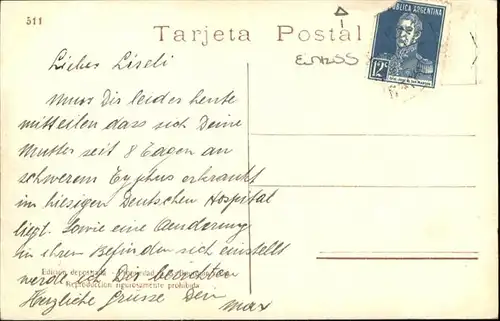 511
Tarjeta Postal
REPUBLICA ARGENTINA
12c
Liebes Liseli
Muss Dir leider heute
mitteilen dass sich Deine
Mutter seit 8 Tagen an
schwerem Typhus erkrankt
im hiesigen Deutschen Hospital
liegt. Sowie eine Aenderung
in ihrem Befinden sich einstellt
werde ich Dir berichten
Herzliche Grüsse Dein
Max
Edición depositada
Reproducción rigurosamente prohibida